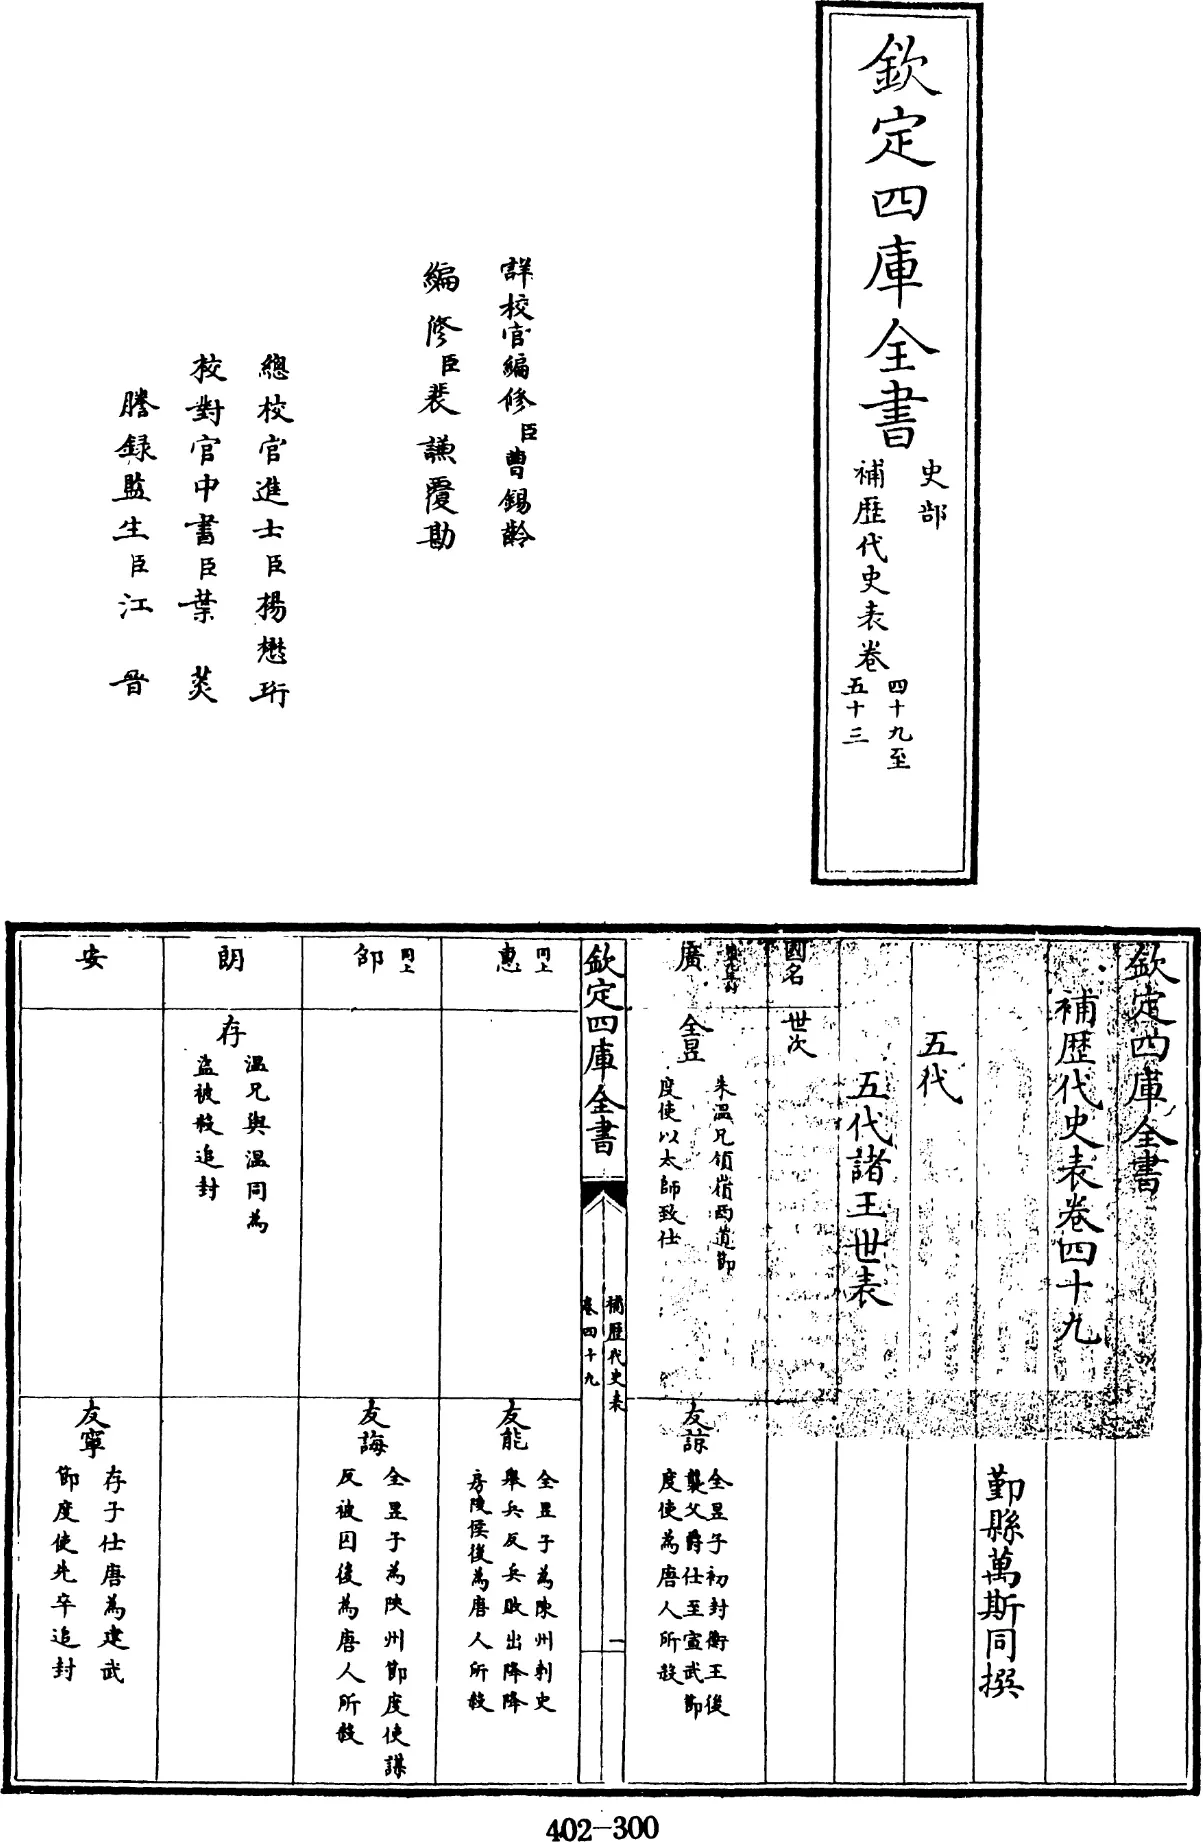 欽定四庫全書
史部
補歷代史表卷
四十九至
五十三
詳校官編修臣曹錫齡
編修臣裴謙覆勘
總校官進士臣楊懋珩
校對官中書臣葉菼
謄錄監生臣江晉
欽定四庫全書
補歷代史表卷四十九
鄞縣萬斯同撰
五代
五代諸王世表
國名
世次
廣
全昱
朱溫兄領嶺西道節
度使以太師致仕
友諒
全昱子初封衡王後
襲父爵仕至宣武節
度使為唐人所殺
欽定四庫全書
補歷代史表
卷四十九
一
同上
惠
友能
全昱子為陳州刺史
舉兵反兵敗出降降
房陵侯後為唐人所殺
同上
邵
友誨
全昱子為陝州節度使謀
反被囚後為唐人所殺
朗
存
溫兄與溫同為
盜被殺追封
安
友寧
存子仕唐為建武
節度使先卒追封
402-300